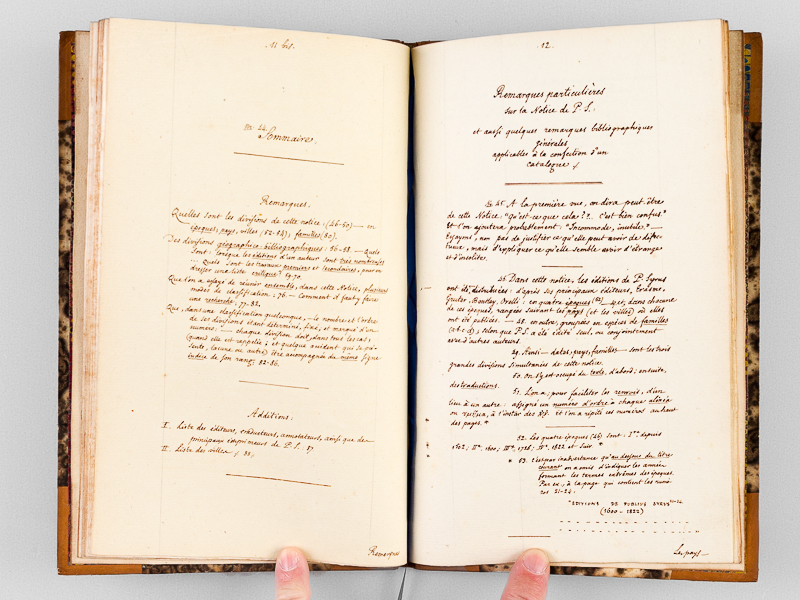 11 bis.
Sommaire.
Remarques.
Quelles sont les divisions de cette notice: (46-50) — en
époques, pays, villes (52-54); familles (50).
Des divisions géographico-bibliographiques: 56-58. — Quels
sont: lorsque les éditions d'un auteur sont très nombreuses
... Quels sont les travaux premiers et secondaires, pour en
dresser une liste critique? 59-70.
Que l'on a essayé de réunir ensemble, dans cette Notice, plusieurs
modes de classification: 76 — Comment il faut y faire
une recherche, 77-82.
Que, dans une classification quelconque, — le nombre et l'ordre
de ses divisions étant déterminé, fixé, et marqué d'un
numéro: — chaque division doit, dans tous les cas,
(quand elle est rappelée; et quelque accident qui se pré-
sente, lacune ou autre) être accompagnée du même signe
indice de son rang: 82-86.
Additions.
I. Liste des éditeurs, traducteurs, annotateurs, ainsi que des
principaux imprimeurs de P. S.: 87
II. Liste des villes: 88.
Remarques
12.
Remarques particulières
sur la Notice de P. S.:
et aussi quelques remarques bibliographiques
générales
applicables à la confection d'un
catalogue.
45. A la première vue, on dira peut-être
de cette Notice: "Qu'est-ce que cela?". "c'est bien confus."
Et l'on ajoutera probablement: "Incommode, inutile." —
Essayons, non pas de justifier ce qu'elle peut avoir de défec-
tueux, mais d'expliquer ce qu'elle semble avoir d'étrange
et d'insolite.
46. Dans cette notice, les éditions de P. Syrus
ont été distribuées: d'après les principaux éditeurs, Erasme,
Gruter, Bentley, Orelli: en quatre époques (52) — 47. et, dans chacune
de ces époques, rangées suivant les pays (et les villes) où elles
ont été publiées. — 48. en outre, groupées en espèces de familles
(a b c d); selon que P. S. a été édité seul, ou conjointement
avec d'autres auteurs.
49. Ainsi — dates, pays, familles — sont les trois
grandes divisions simultanées de cette notice.
50. On s'y est occupé du texte, d'abord; ensuite,
des traductions.
51. L'on a, pour faciliter les renvois, d'un
lieu à un autre: assigné un numéro d'ordre à chaque alinéa
ou verset, à l'instar des §§. et l'on a répété ces numéros au haut
des pages. *
52. Les quatre époques (46) sont: Ire depuis
1502; IIe, 1600; IIIe, 1726; IVe, 1822 et suiv. *
* 53. C'est par inadvertance qu'au dessous du titre
courant on a omis d'indiquer les années
formant les termes extrêmes des époques.
Par ex., à la page qui contient les numé-
ros 21-24.
"EDITIONS DE PUBLIUS SYRUS 21-24
(1600 – 1822)
Les pays —